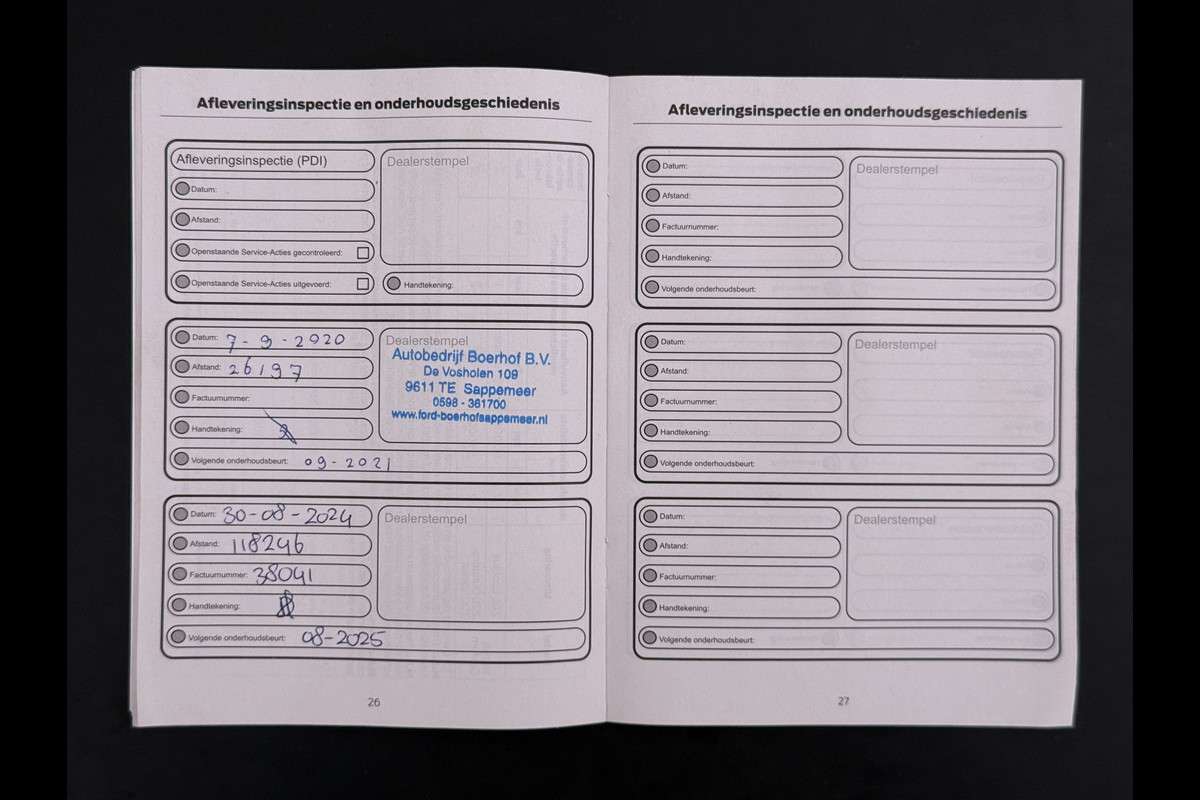 Afleveringsinspectie en onderhoudsgeschiedenis
Afleveringsinspectie (PDI)
Datum:
Afstand:
Openstaande Service-Acties gecontroleerd:
Openstaande Service-Acties uitgevoerd:
Dealerstempel
Handtekening:
Datum: 7-9-2020
Afstand: 26197
Factuurnummer:
Handtekening:
Volgende onderhoudsbeurt: 09-2021
Dealerstempel
Autobedrijf Boerhof B.V.
De Vosholen 109
9611 TE Sappemeer
0598 - 361700
www.ford-boerhofsappemeer.nl
Datum: 30-08-2024
Afstand: 118246
Factuurnummer: 38041
Handtekening:
Volgende onderhoudsbeurt: 08-2025
Dealerstempel
26
Afleveringsinspectie en onderhoudsgeschiedenis
Datum:
Afstand:
Factuurnummer:
Handtekening:
Volgende onderhoudsbeurt:
Dealerstempel
Datum:
Afstand:
Factuurnummer:
Handtekening:
Volgende onderhoudsbeurt:
Dealerstempel
Datum:
Afstand:
Factuurnummer:
Handtekening:
Volgende onderhoudsbeurt:
Dealerstempel
27